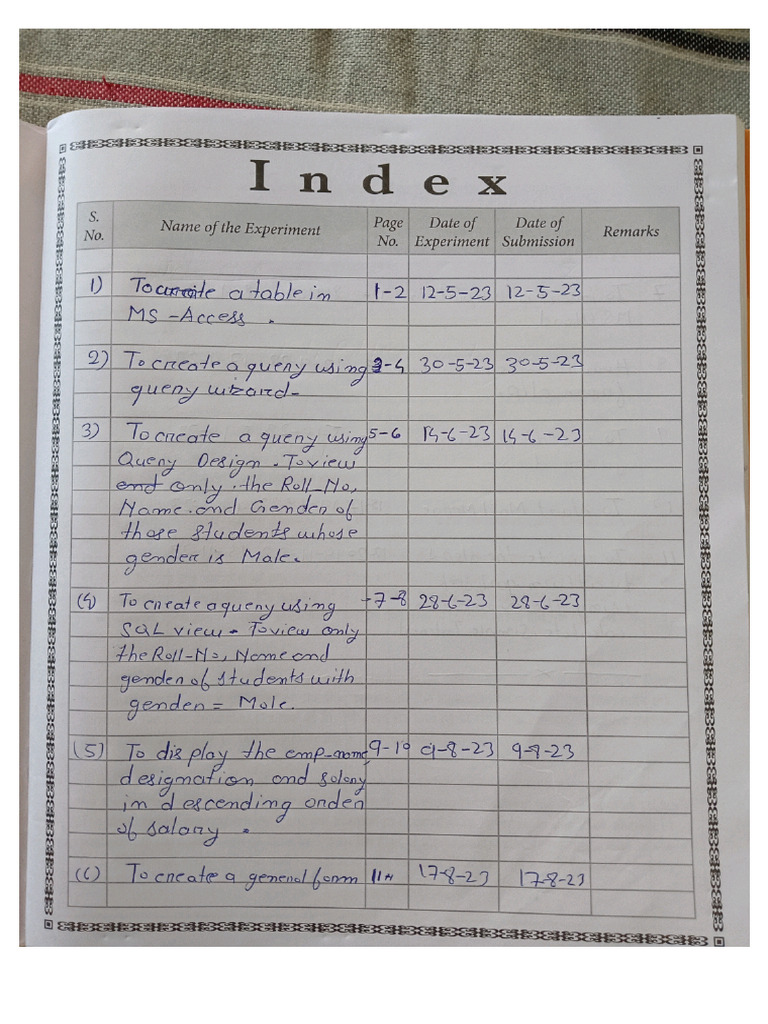 Index
S. No. Name of the Experiment Page No. Date of Experiment Date of Submission Remarks
1) To create a table in 1-2 12-5-23 12-5-23
MS-Access.
2) To create a query using 3-4 30-5-23 30-5-23
query wizard-
3) To create a query using 5-6 14-6-23 14-6-23
Query Design. To view
only the Roll_No,
Name and Gender of
those students whose
gender is Male.
(4) To create a query using 7-8 28-6-23 28-6-23
SQL view. To view only
the Roll-No, Name and
gender of students with
gender = Male.
(5) To display the emp_name, 9-10 9-8-23 9-8-23
designation and salary
in descending order
of salary.
(6) To create a general form 11 17-8-23 17-8-23